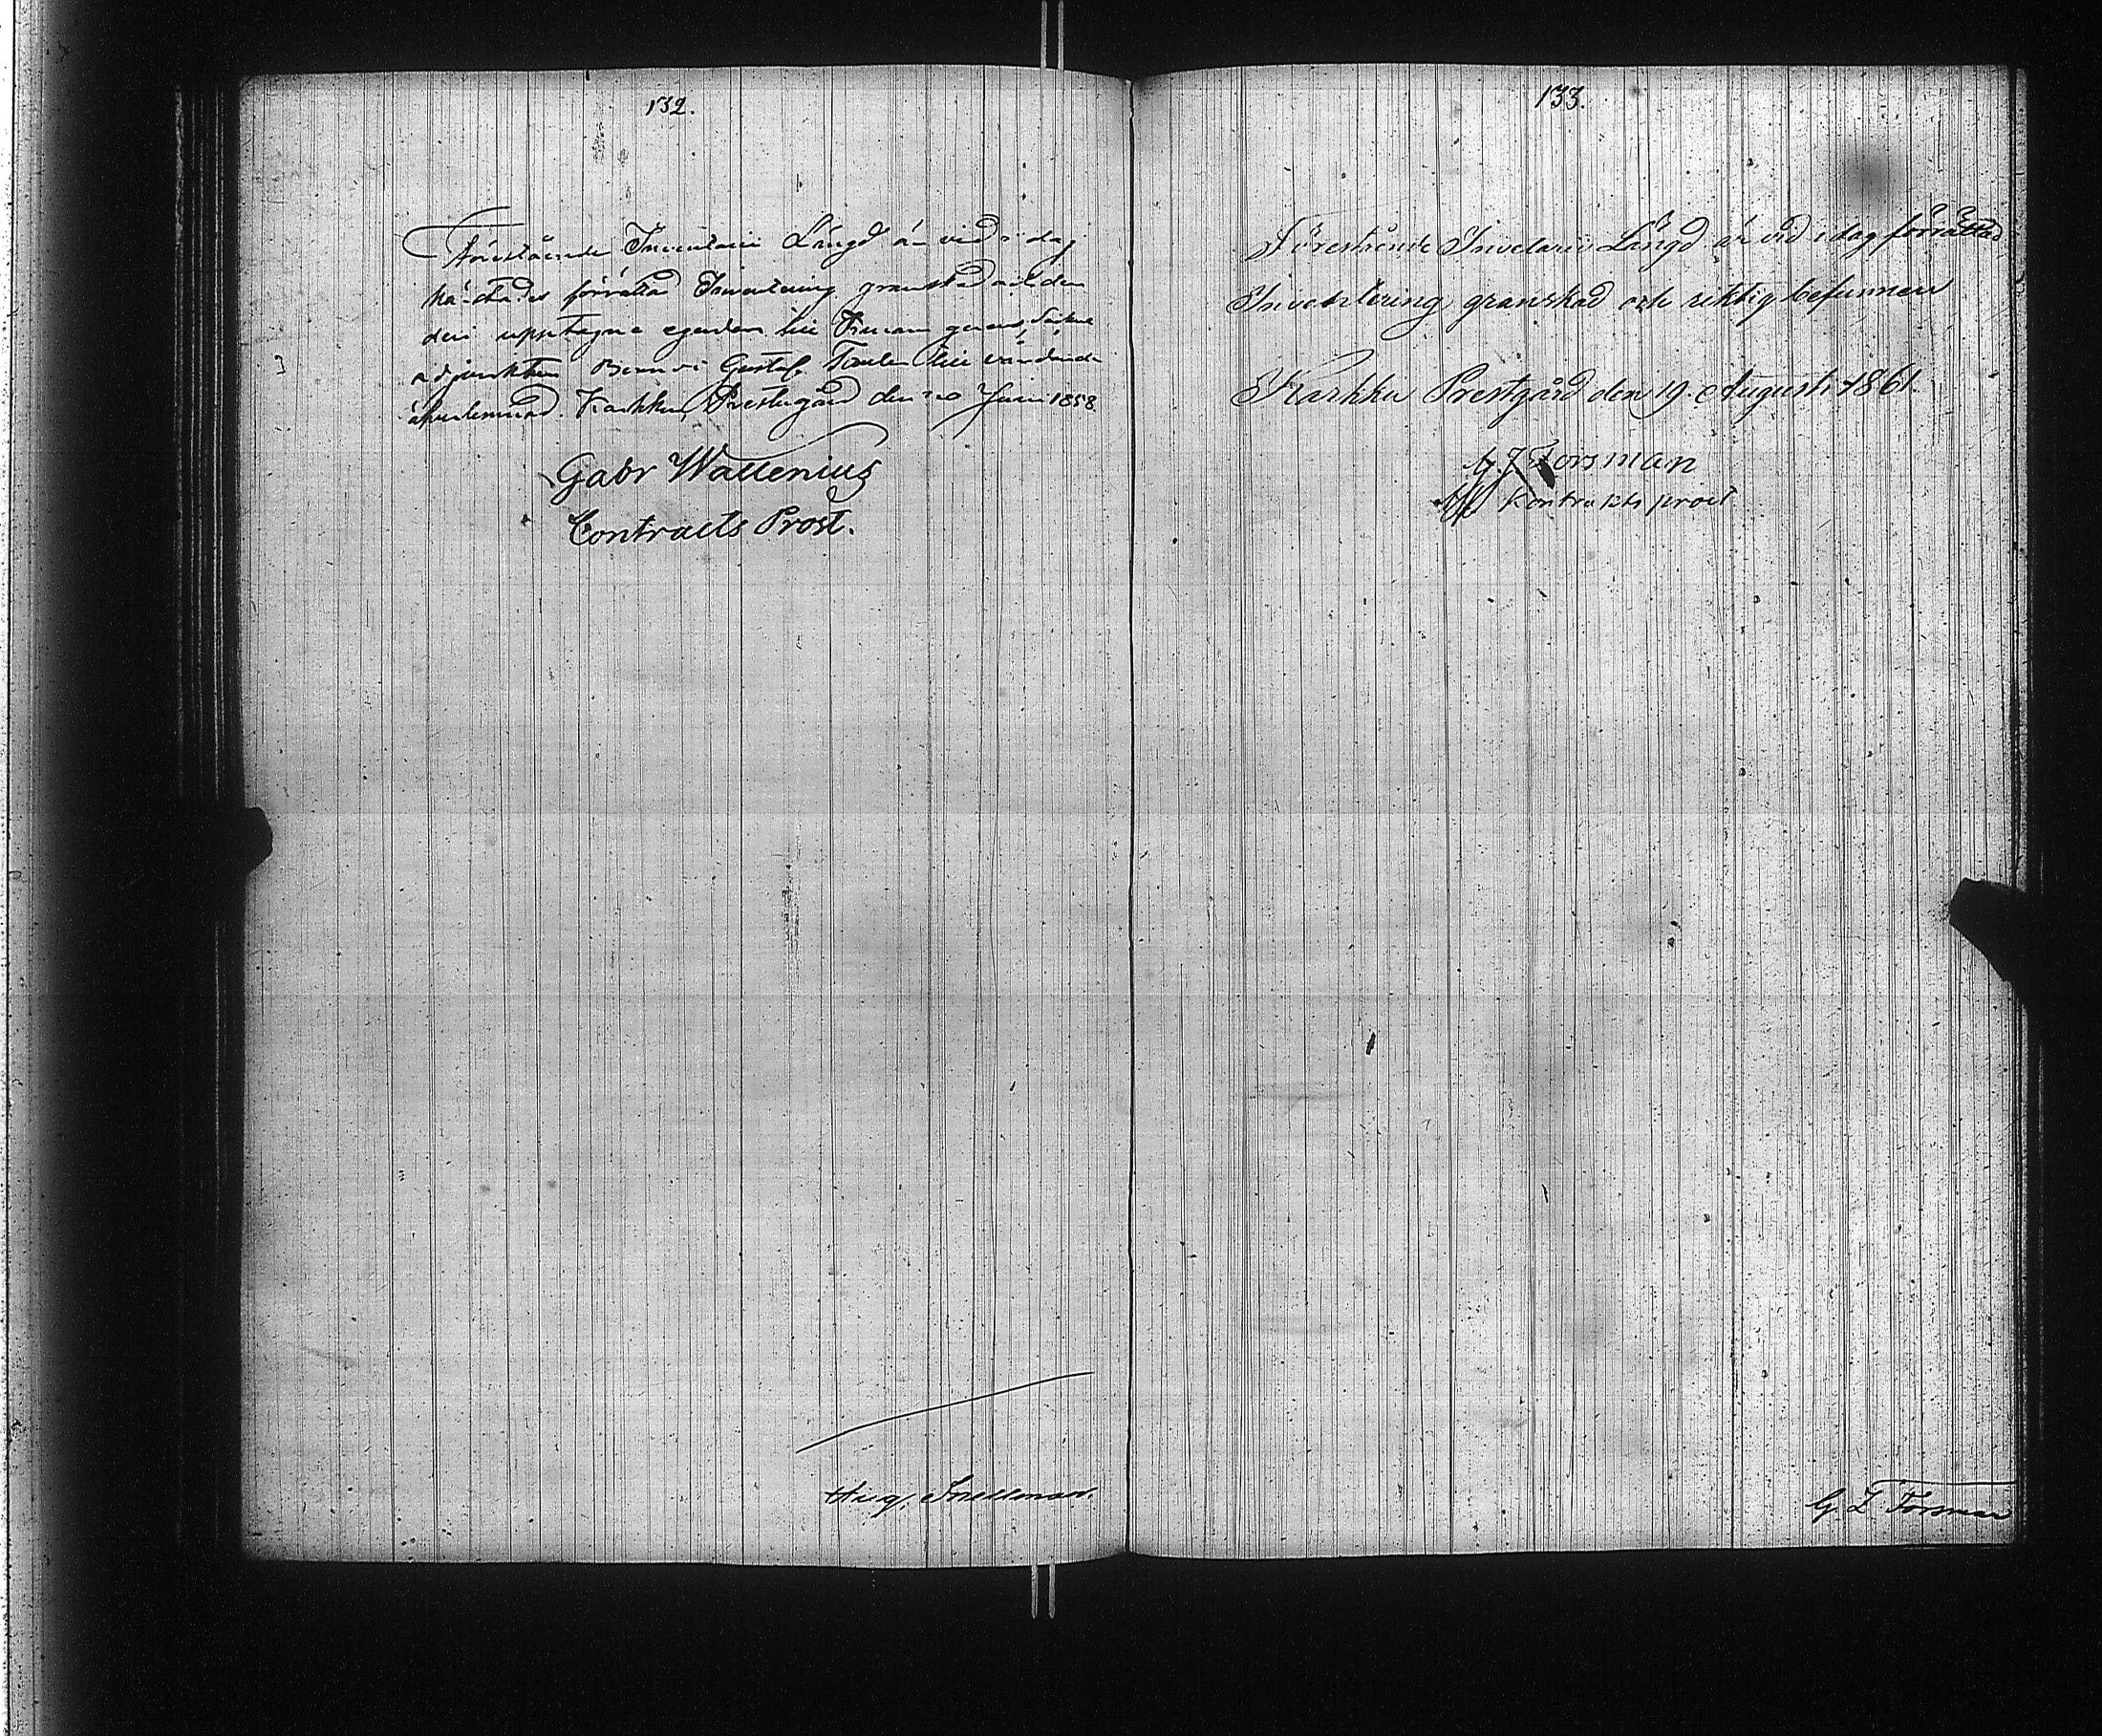 132.
Förestående Inventarii Längd är vid i dag
förrättad Inventering granskad och den
deri upptagne egendom
adjunkten Gustaf till vårdande
öfverlemnad. Karkku Prestegård den 20 Juni 1858.
Gabr Wallenius
Contracts Prost.
Aug. Snellman.
133.
Förestående Invetarii Längd är vid i dag förrättad
Inventering granskad och riktig befunnen
Karkku Prestgård den 19. Augusti 1861.
Forsman
Kontrakts prost
G. Z Forsman